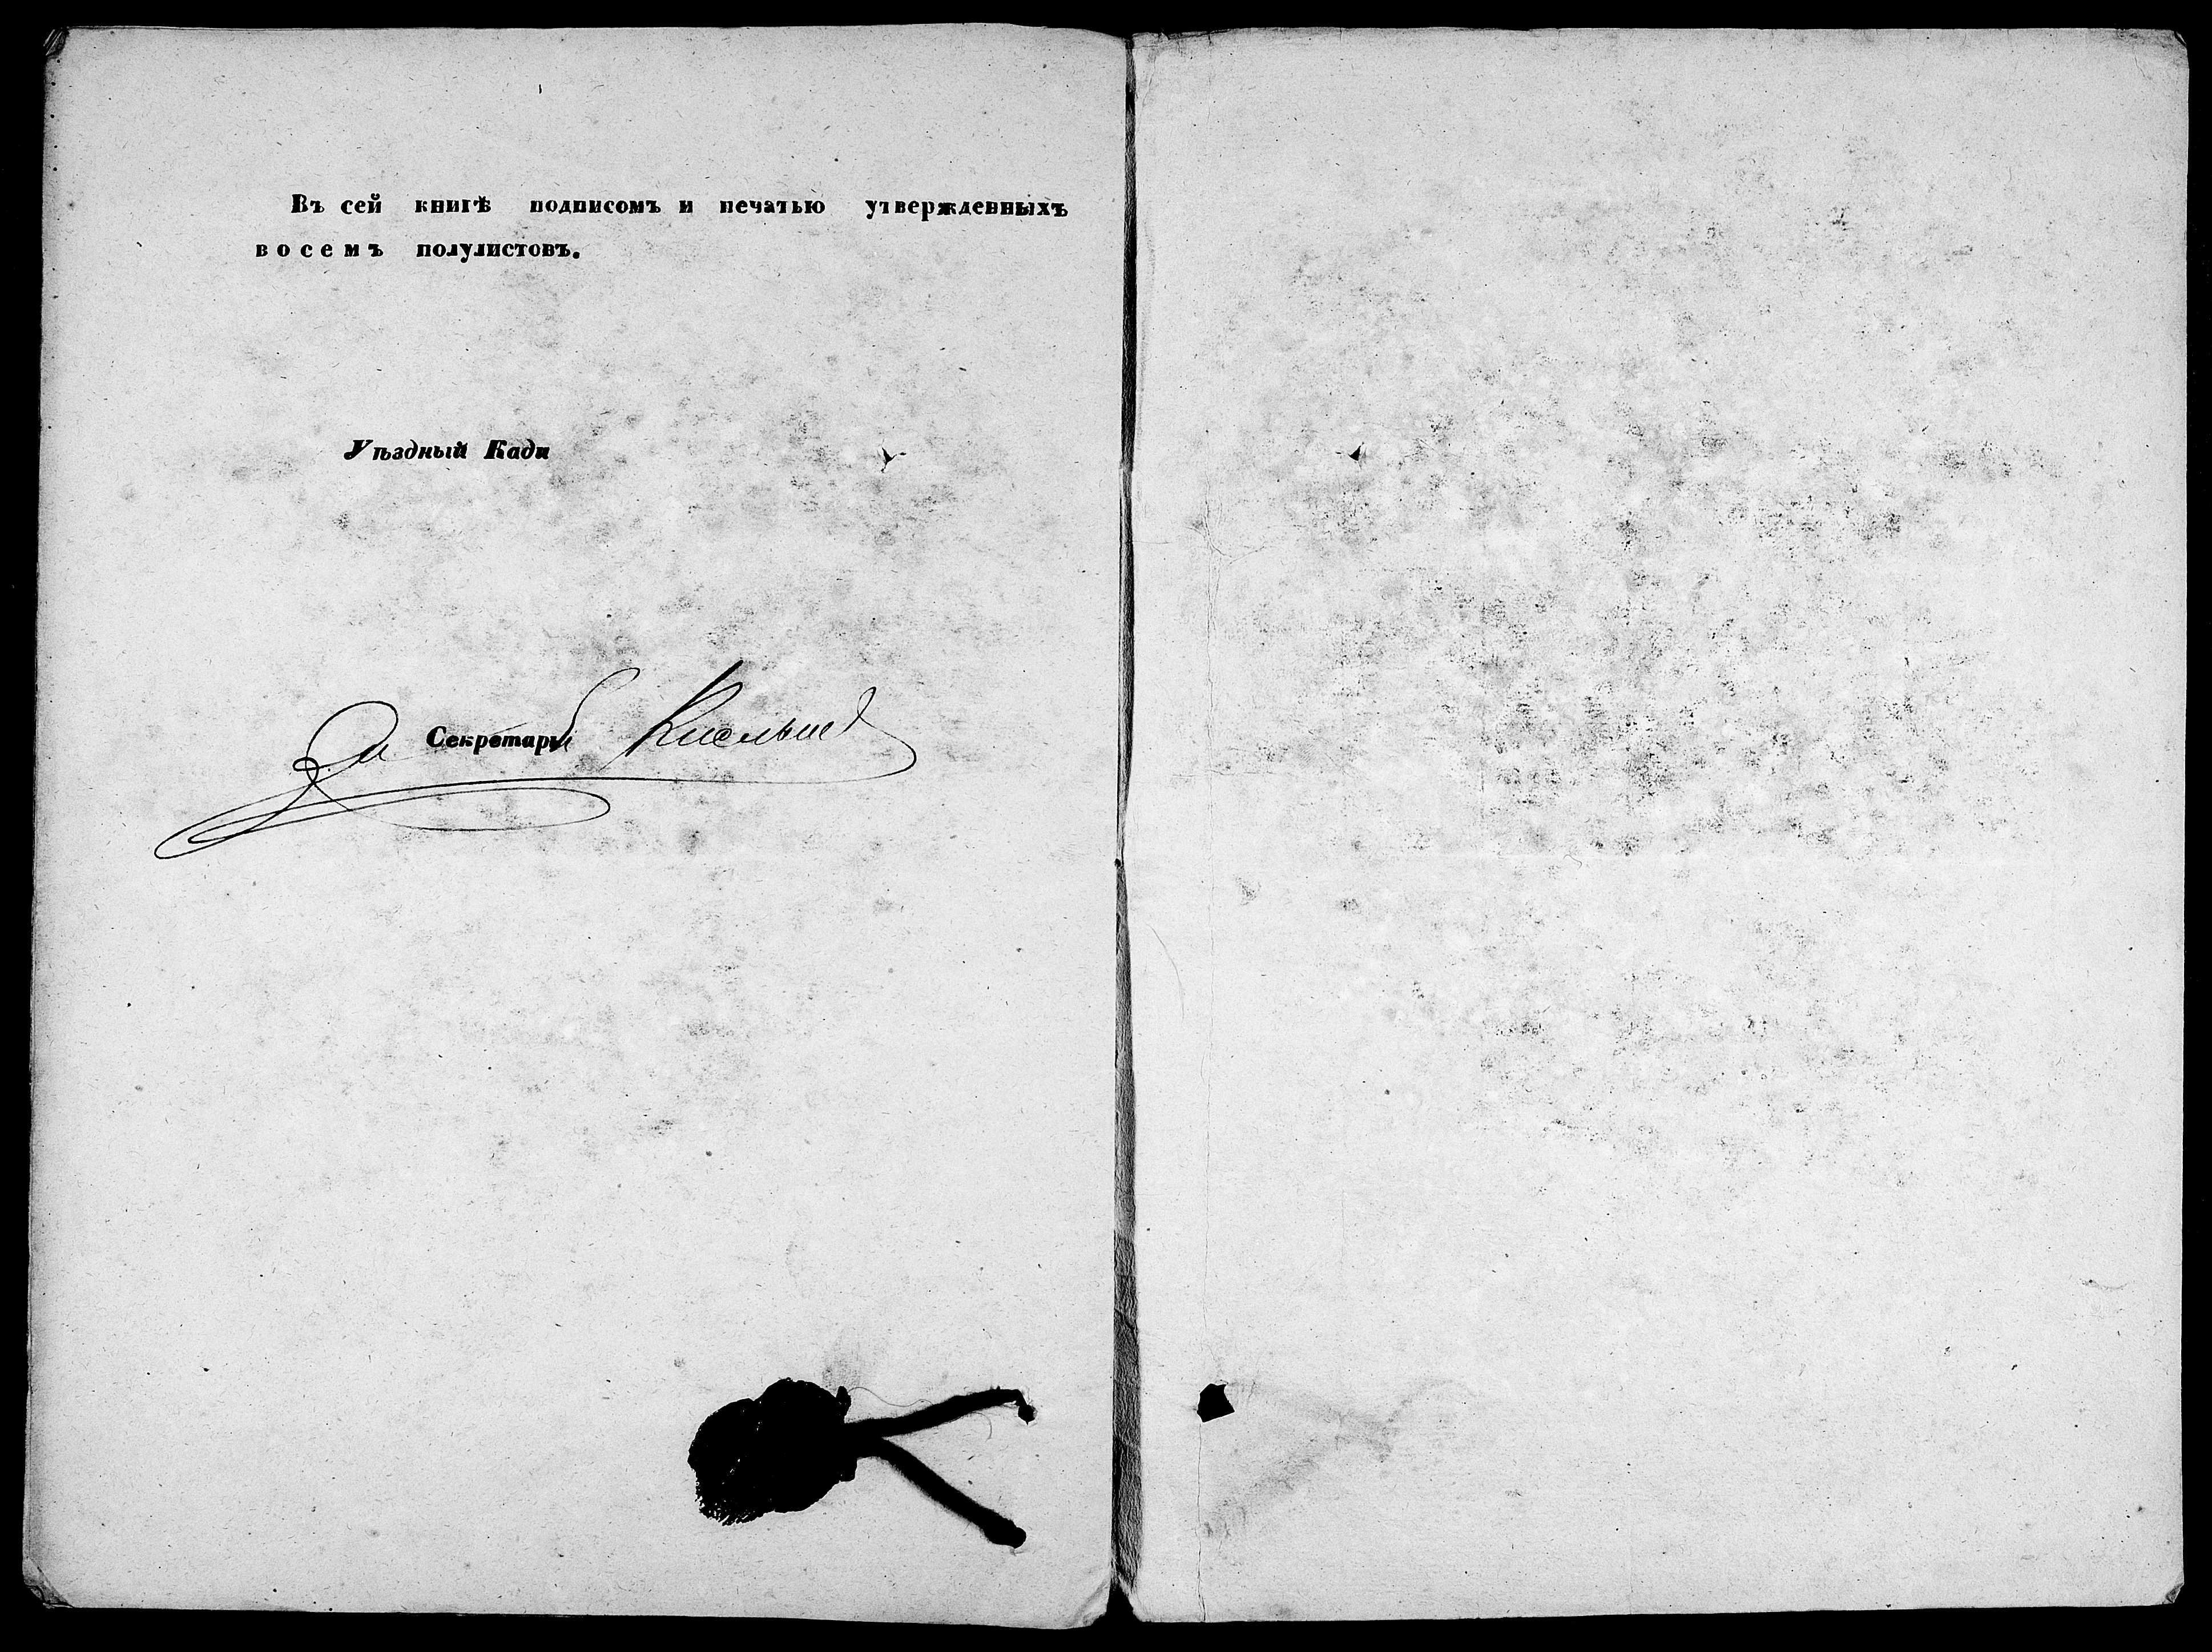 Въ сей книгѣ подписомъ и печатью утвержденныхъ
восемъ полулистовъ.
Уѣздный Кади
За Секретаря